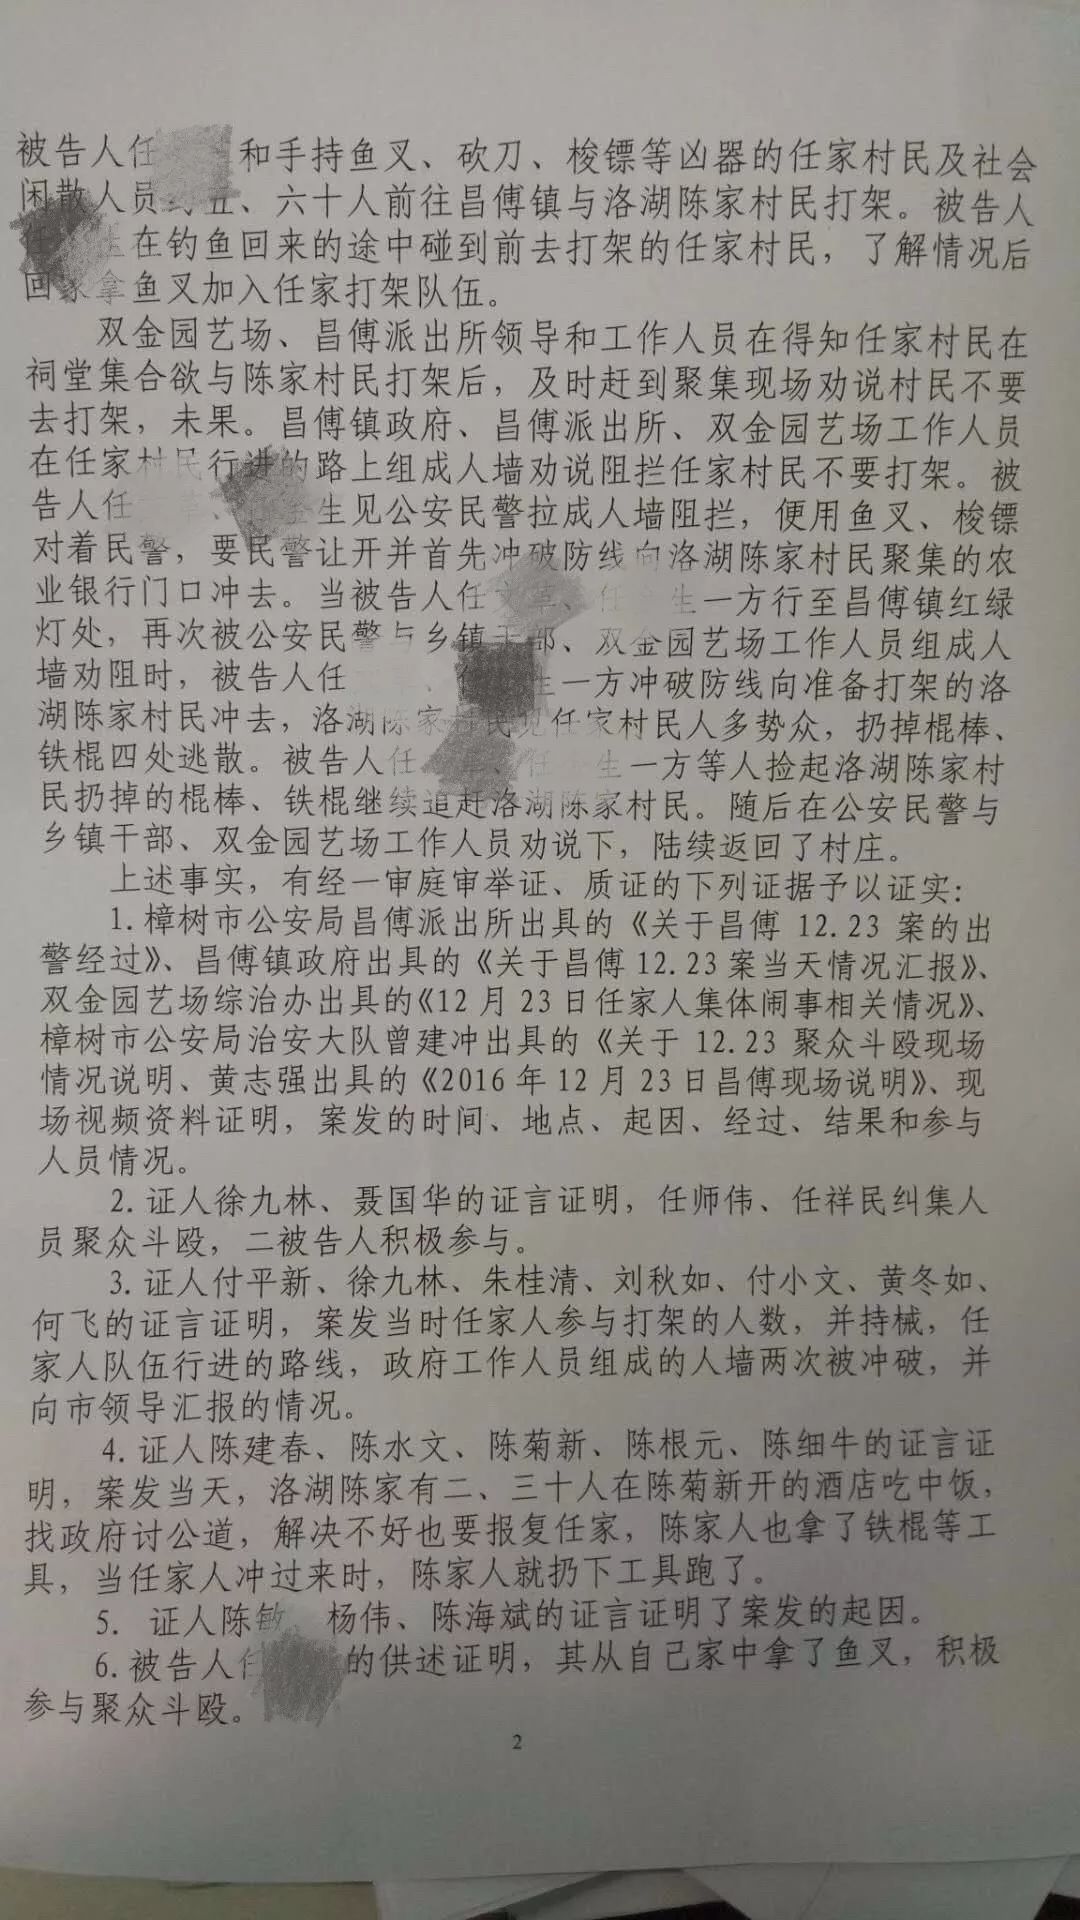 被告人任 和手持鱼叉、砍刀、梭镖等凶器的任家村民及社会
闲散人员约五、六十人前往昌傅镇与洛湖陈家村民打架。被告人
任 生在钓鱼回来的途中碰到前去打架的任家村民，了解情况后
回家拿鱼叉加入任家打架队伍。
双金园艺场、昌傅派出所领导和工作人员在得知任家村民在
祠堂集合欲与陈家村民打架后，及时赶到聚集现场劝说村民不要
去打架，未果。昌傅镇政府、昌傅派出所、双金园艺场工作人员
在任家村民行进的路上组成人墙劝说阻拦任家村民不要打架。被
告人任 、 生见公安民警拉成人墙阻拦，便用鱼叉、梭镖
对着民警，要民警让开并首先冲破防线向洛湖陈家村民聚集的农
业银行门口冲去。当被告人任 、任 生一方行至昌傅镇红绿
灯处，再次被公安民警与乡镇干部、双金园艺场工作人员组成人
墙劝阻时，被告人任 、 生一方冲破防线向准备打架的洛
湖陈家村民冲去，洛湖陈家村民见任家村民人多势众，扔掉棍棒、
铁棍四处逃散。被告人任 、任 生一方等人捡起洛湖陈家村
民扔掉的棍棒、铁棍继续追赶洛湖陈家村民。随后在公安民警与
乡镇干部、双金园艺场工作人员劝说下，陆续返回了村庄。
上述事实，有经一审庭审举证、质证的下列证据予以证实：
1. 樟树市公安局昌傅派出所出具的《关于昌傅 12.23 案的出
警经过》、昌傅镇政府出具的《关于昌傅 12.23 案当天情况汇报》、
双金园艺场综治办出具的《12 月 23 日任家人集体闹事相关情况》、
樟树市公安局治安大队曾建冲出具的《关于 12.23 聚众斗殴现场
情况说明、黄志强出具的《2016 年 12 月 23 日昌傅现场说明》、现
场视频资料证明，案发的时间、地点、起因、经过、结果和参与
人员情况。
2. 证人徐九林、聂国华的证言证明，任师伟、任祥民纠集人
员聚众斗殴，二被告人积极参与。
3. 证人付平新、徐九林、朱桂清、刘秋如、付小文、黄冬如、
何飞的证言证明，案发当时任家人参与打架的人数，并持械，任
家人队伍行进的路线，政府工作人员组成的人墙两次被冲破，并
向市领导汇报的情况。
4. 证人陈建春、陈水文、陈菊新、陈根元、陈细牛的证言证
明，案发当天，洛湖陈家有二、三十人在陈菊新开的酒店吃中饭，
找政府讨公道，解决不好也要报复任家，陈家人也拿了铁棍等工
具，当任家人冲过来时，陈家人就扔下工具跑了。
5. 证人陈敏 杨伟、陈海斌的证言证明了案发的起因。
6. 被告人任 的供述证明，其从自己家中拿了鱼叉，积极
参与聚众斗殴。
2